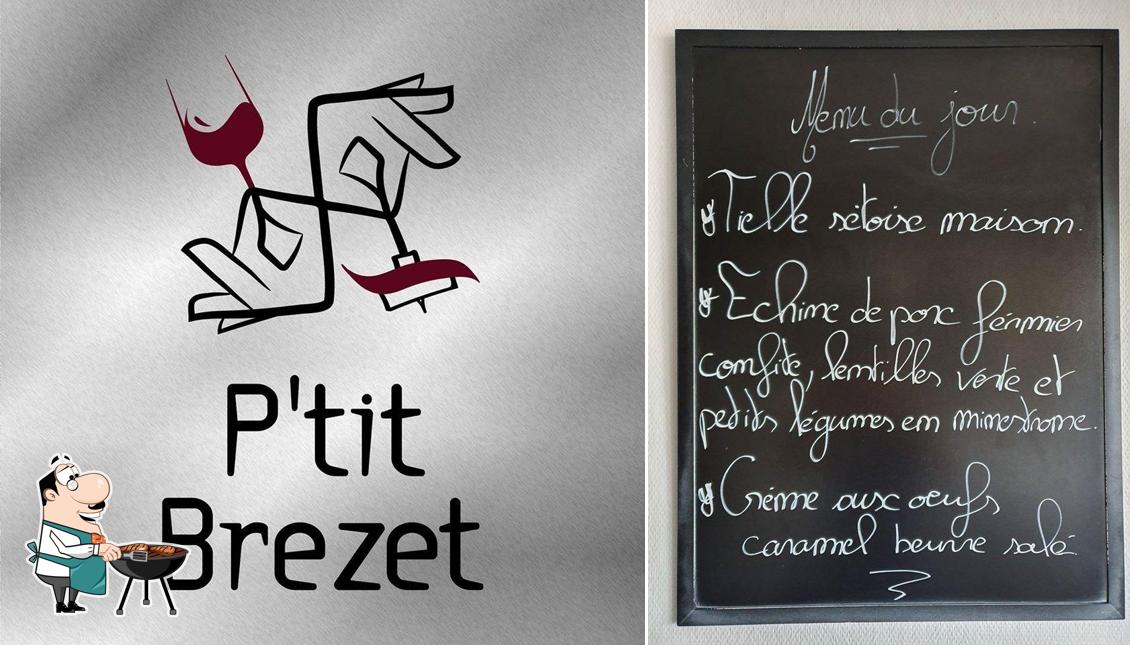 P'tit
Brezet
Menu du jour.
Tielle sétoise maison.
Echine de porc fermier
confite, lentilles verte et
petits légumes en minestrone.
Crème aux oeufs
caramel beurre salé